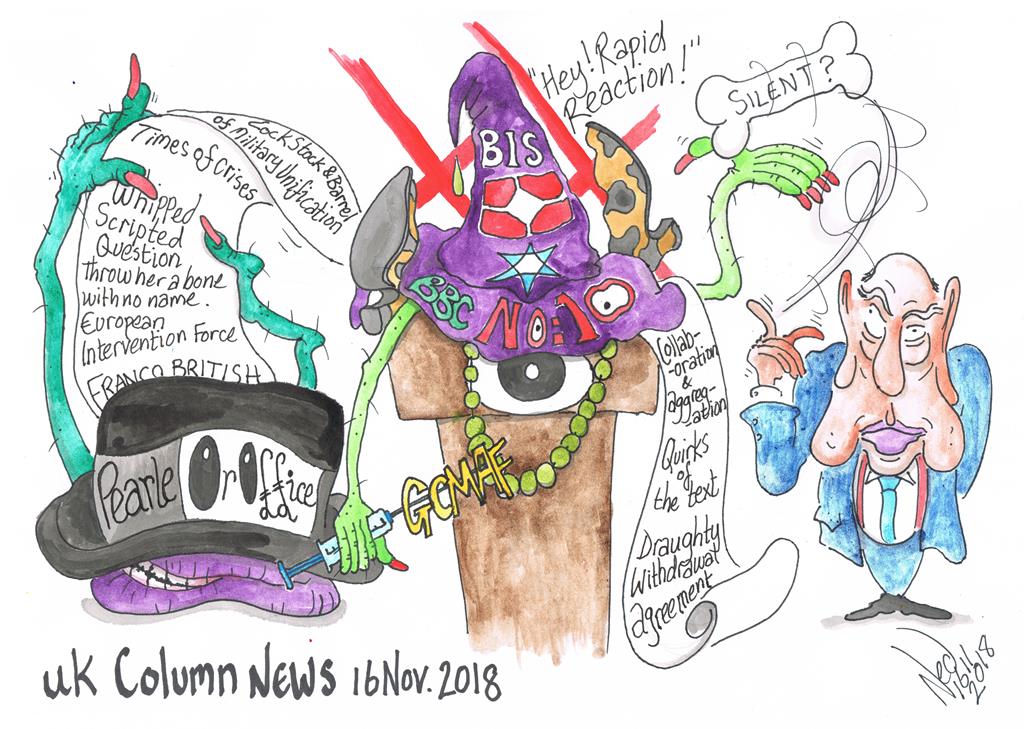 "Hey! Rapid
Reaction!"
SILENT?
Lock Stock & Barrel
of Military Unification
Times of Crises
Whipped
Scripted
Question
throw her a bone
with no name.
European
Intervention Force
FRANCO BRITISH
BIS
BBC
NO:10
Pearle Or Office
GCMAF
Collab-
-oration
&
aggreg-
-ation
Quirks
of
the text
Draughty
Withdrawal
agreement
UK Column News 16 Nov. 2018
16.11
2018